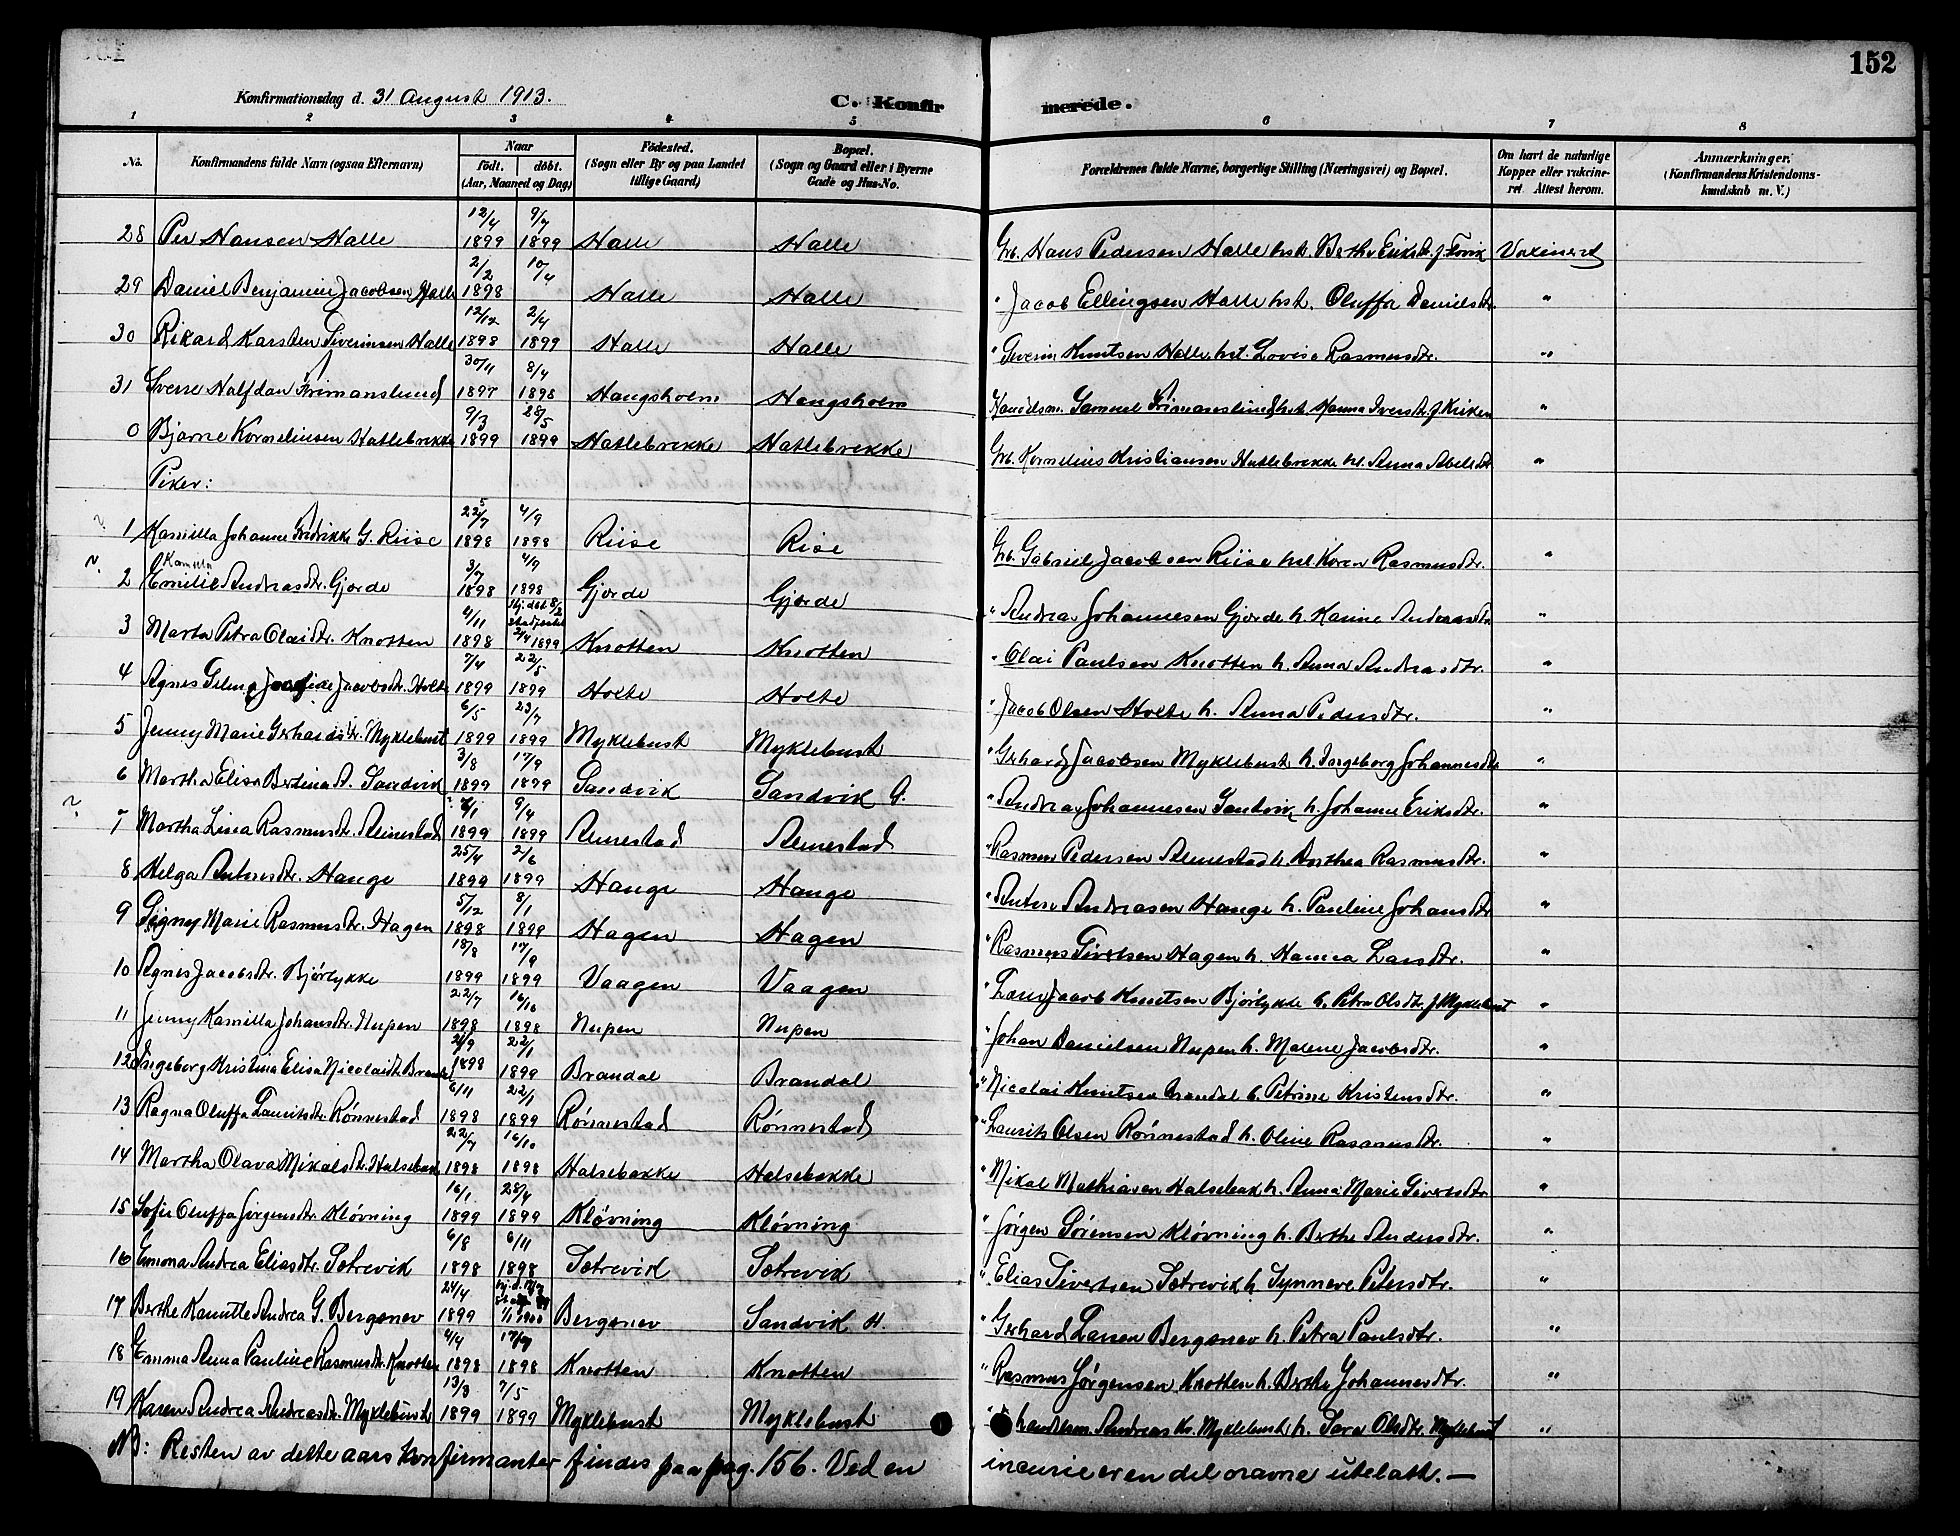 152
Konfirmationsdag d. 31 August 1913.
C. Konfirmerede.
1 2 3 4 5 6 7 8
No. Konfirmandens fulde Navn (ogsaa Efternavn) Naar födt. döbt. (Aar, Maaned og Dag) Födested. (Sogn eller By og paa Landet tillige Gaard) Bopæl. (Sogn og Gaard eller i Byerne Gade og Hus-No. Forældrenes fulde Navne, borgerlige Stilling (Næringsvei) og Bopæl. Om havt de naturlige Kopper eller vaccineret. Attest herom. Anmærkninger. (Konfirmandens Kristendomskundskab m. V.)
28 Per Hansen Halle 12/4 1899 9/7 1899 Halle Halle Grb. Hans Pedersen Halle hst. Berthe Eriksdtr. f. Vaxineret
29 Daniel Benjamin Jacobsen Halle 2/2 1898 10/4 Halle Halle " Jacob Ellingsen Halle hst. Oluffa Danielsdtr. "
30 Rikard Karsten Siverinsen Halle 12/12 1898 2/4 1899 Halle Halle " Siverin Knutsen Halle hst. Lovise Rasmusdtr. "
31 Sverre Halfdan Frimanslund 30/11 1897 8/4 1898 Haugsholm Haugsholm Handelsm. Samuel Frimanslund hst. Hanna Iversdtr. f. Kirken "
0 Bjarne Korneliusen Hatlebrekke 9/3 1899 28/5 1899 Hatlebrekke Hatlebrekke Grb. Kornelius Kristiansen Hatlebrekke h. Anna Abelsdtr "
Piker:
1 Kamilla Johanne Fredrikke G. Riise 22/7 1898 4/9 1898 Riise Rise Grb. Gabriel Jacobsen Riise hst Karen Rasmusdtr. "
2 Emilie Kamilla Andreasdtr. Gjerde 3/7 1898 4/9 1898 Gjerde Gjerde " Andreas Johannesen Gjerde h. Karine Andreasdtr "
3 Marta Petra Olaisdtr. Knotten 4/11 1898 hj. døbt 8/2 stadfæstet 2/4 1899 Knotten Knotten " Olai Paulsen Knotten h. Anna Andreasdtr. "
4 Agnes Jacobsdtr. Holte 7/4 1899 22/5 1899 Holte Holte " Jacob Olsen Holte h. Anna Pedersdtr. "
5 Jenny Marie Gerhardsdtr. Myklebust 6/5 1899 23/7 1899 Myklebust Myklebust " Gerhard Jacobsen Myklebust h. Ingeborg Johannesdtr "
6 Martha Elisa Berlina A. Sandvik 3/8 1899 17/9 1899 Sandvik Sandvik A. " Andreas Johannesen Sandvik h. Johanne Eriksdtr. "
7 Martha Lina Rasmusdtr. Aunestad 1899 9/4 1899 Aunestad Aunestad " Rasmus Pedersen Aunestad h. Dorthea Rasmusdtr. "
8 Helga Antonsdtr. Hauge 25/4 1899 2/6 1899 Hauge Hauge " Anton Andreasen Hauge h. Pauline Johansdtr "
9 Signy Marie Rasmusdtr. Hagen 5/12 1898 8/1 1899 Hagen Hagen " Rasmus Sivertsen Hagen h. Hanna Larsdtr. "
10 Agnes Jacobsdtr. Bjørlykke 18/8 1899 17/9 1899 Vaagen Vaagen " Lars Jacob Knutsen Bjørlykke h. Petra Olsdtr. f. Myklebust "
11 Jenny Kamilla Johansdtr. Nupen 22/7 1898 16/10 1898 Nupen Nupen " Johan Danielsen Nupen h. Malene Jacobsdtr. "
12 Ingeborg Kristina Elisa Nicolaidtr. Brandal 21/9 1898 22/1 1899 Brandal Brandal " Nicolai Knutsen Brandal h. Petrine Kristensdtr. "
13 Ragna Oluffa Lauritsdtr. Rönnestad 6/11 1898 22/1 1899 Rönnestad Rönnestad " Laurits Olsen Rönnestad h. Oline Rasmusdtr. "
14 Martha Olava Mikalsdtr. Halsebak 22/7 1898 16/10 1898 Halsebakke Halsebakke " Mikal Mathiasen Halsebak h. Anna Marie Siversdtr "
15 Sofie Oluffa Jørgensdtr. Kløvning 16/1 1899 23/4 1899 Kløvning Kløvning " Jörgen Sörensen Kløvning h. Berthe Andersdtr. "
16 Emmona Andrea Eliasdtr. Sætrevik 6/8 1898 6/11 1898 Sætrevik Sætrevik " Elias Sivertsen Sætrevik h. Synneve Petersdtr. "
17 Berthe Kamitte Andrea G. Bergsnev 24/4 1899 1/1 1900 Bergsnev Sandvik H. " Gerhard Larsen Bergsnev h. Petra Paulsdtr. "
18 Emma Anna Pauline Rasmusdtr. Knotten 4/4 1898 17/7 1898 Knotten Knotten " Rasmus Jørgensen Knotten h. Berthe Johannesdtr. "
19 Karen Andrea Andreasdtr. Myklebust 13/3 1899 7/5 1899 Myklebust Myklebust handlesm. Andreas Kr. Myklebust h. Sara Olsdtr. Myklebust "
NB: Resten av dette aars konfirmanter findes paa pag. 156. Ved en incurie er en del navne utelatt. —